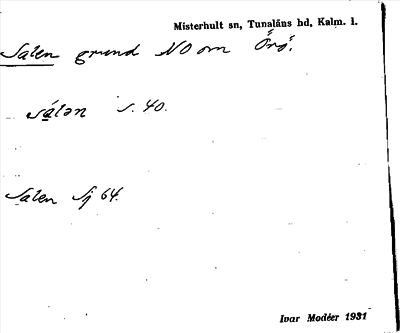 Misterhult sn, Tunaläns hd, Kalm. l.
Salen grund NO om Örö.
sálən s. 40.
Salen Sj 64.
Ivar Modéer 1931